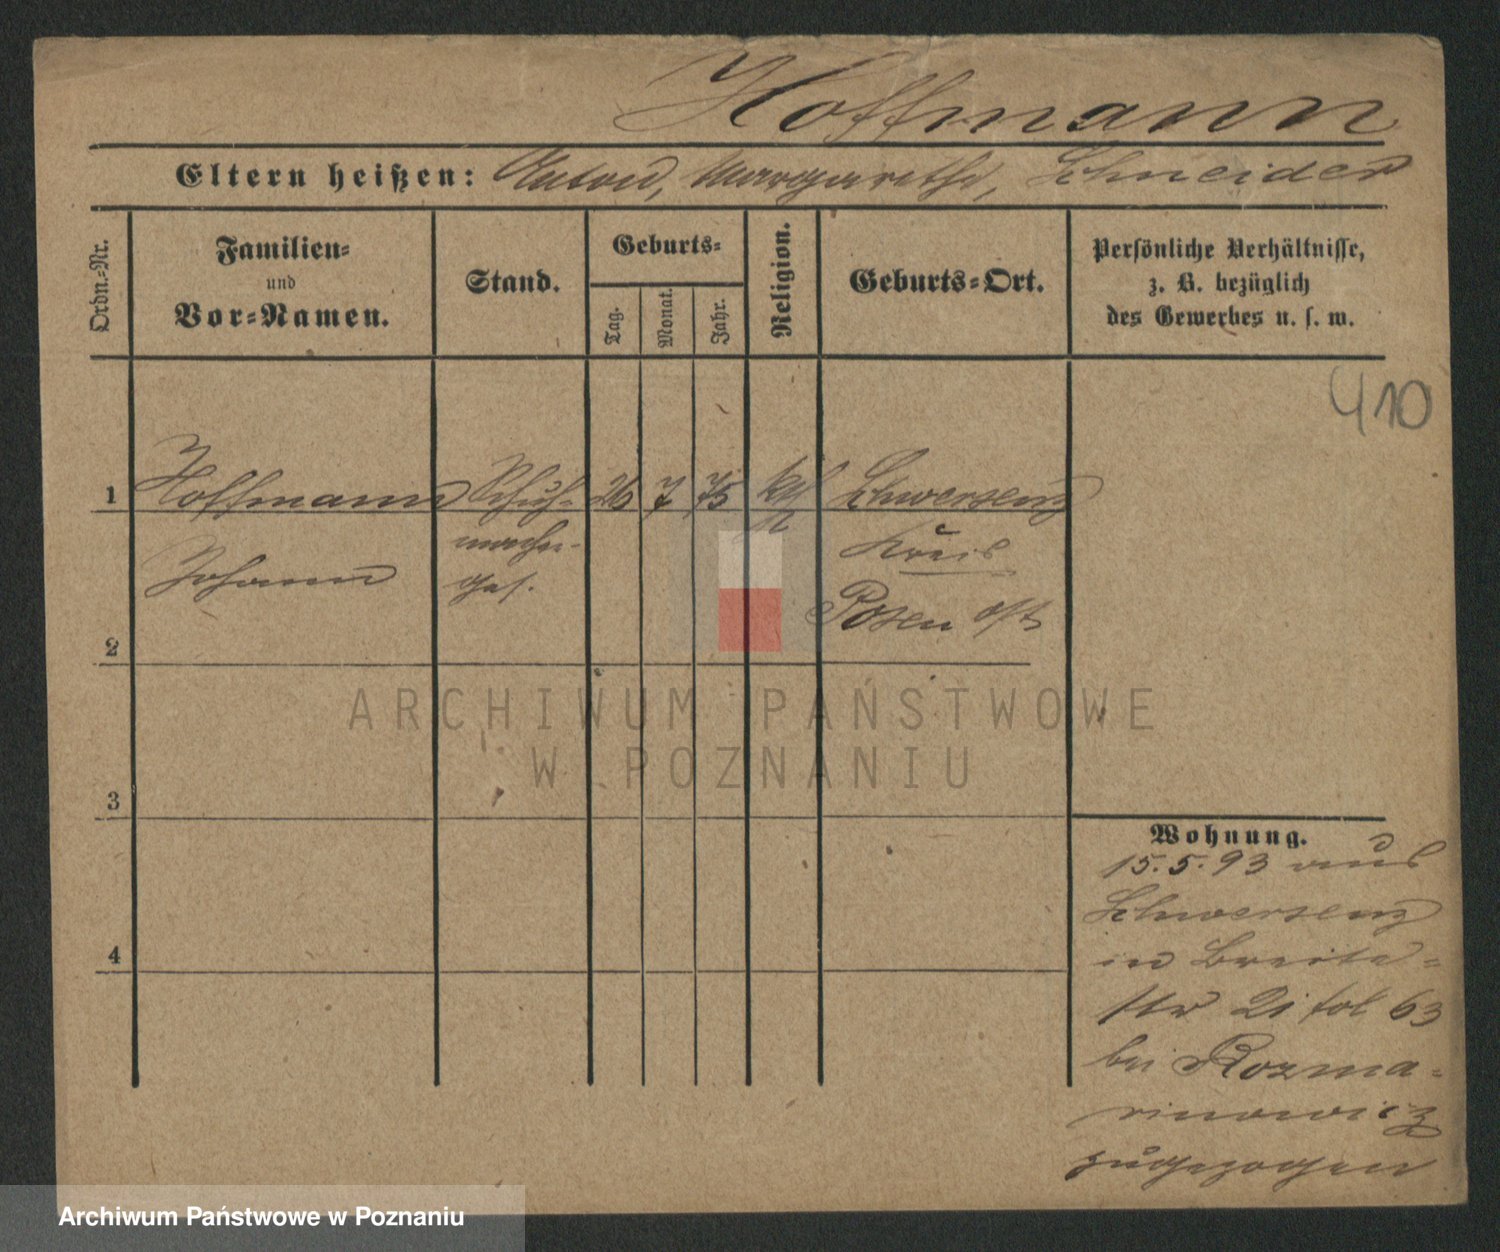 Hoffmann
Eltern heißen: Anton, Margarethe, Schneider
Ordn.-Nr.
Familien-
und
Vor-Namen.
Stand.
Geburts-
Tag.
Monat.
Jahr.
Religion.
Geburts-Ort.
Persönliche Verhältnisse,
z. B. bezüglich
des Gewerbes u. s. w.
410
1 Hoffmann Schuh- 26 7 75 kth Schwersenz
macher- Kreis
Johann ges.
Posen Ost
2
ARCHIWUM PAŃSTWOWE
W POZNANIU
3
Wohnung.
15.5.93 aus
Schwersenz
4
in Breite-
str 21 fol 63
bei Rozma-
rinowicz
zugezogen
Archiwum Państwowe w Poznaniu